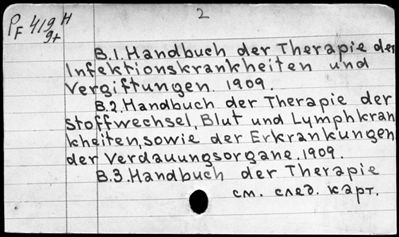 2
PF 419 H
9+
B.1. Handbuch der Therapie der
Infektionskrankheiten und
Vergiftungen. 1909.
B.2. Handbuch der Therapie der
Stoffwechsel, Blut und Lymphkran
kheiten, sowie der Erkrankungen
der Verdauungsorgane. 1909.
B.3. Handbuch der Therapie
см. след. карт.